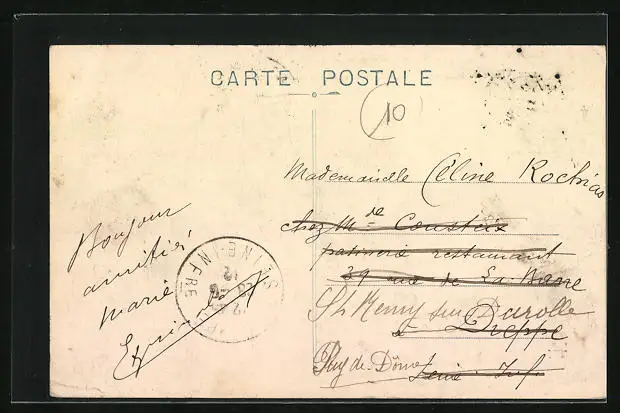 CARTE POSTALE
10
Mademoiselle Céline Rochias
chez Mde Cousteix
patisserie restaurant
39 rue de La Barre
St Remy sur Durolle
à Dieppe
Puy-de-Dôme
Seine Inf
Bonjour
amitiés
Marie
SEINE-INFRE